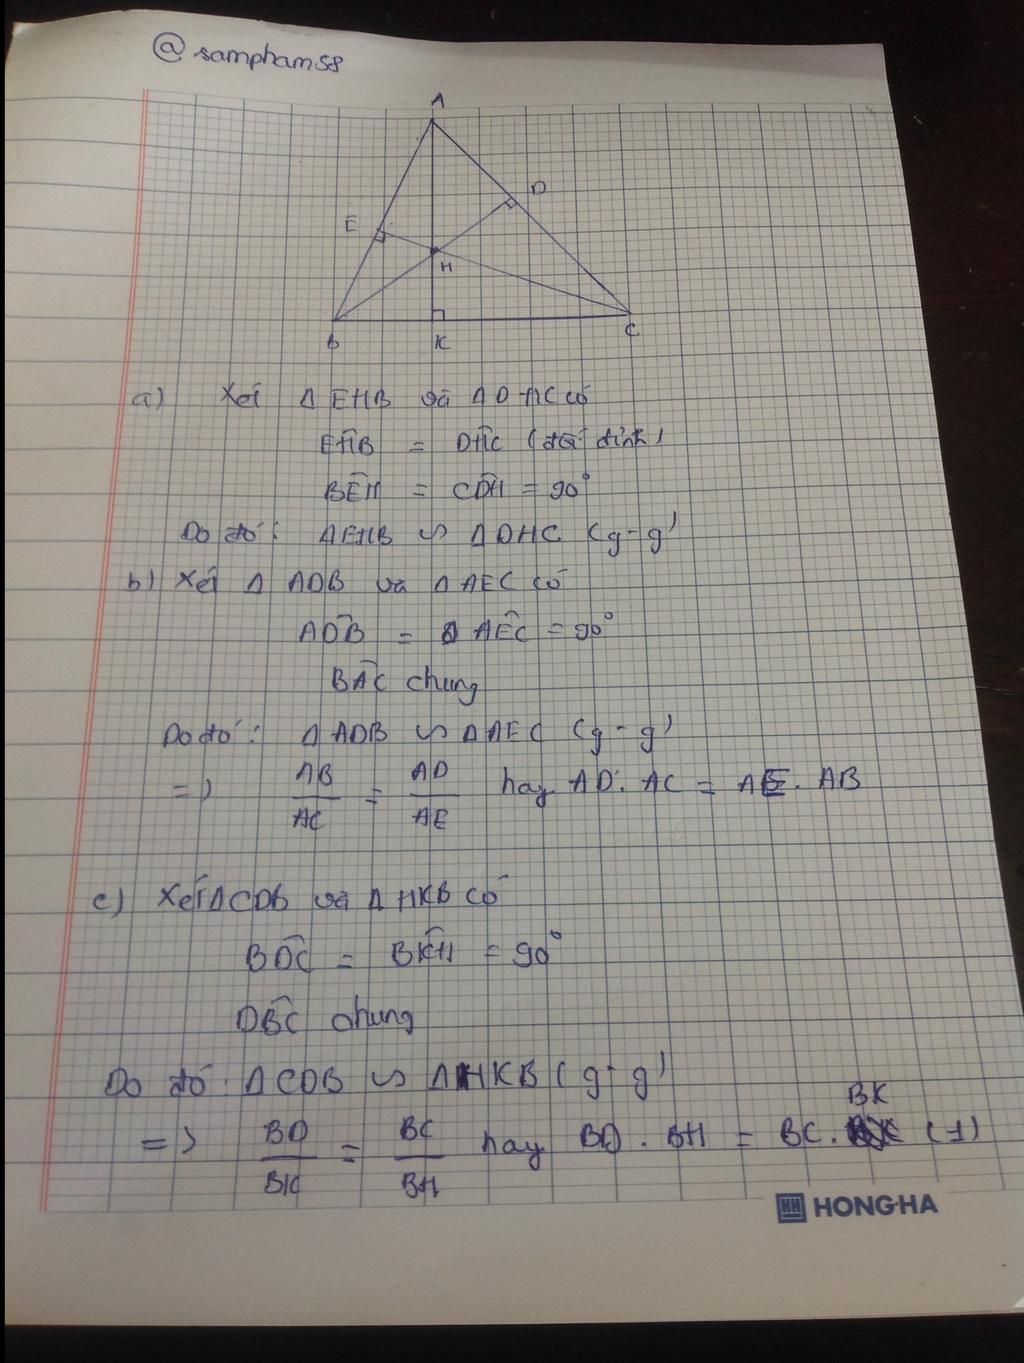 @ sampham58
A
D
E
H
B
K
C
a) Xét Δ EHB và Δ DHC có
EĤB = DĤC (đối đỉnh)
BÊH = CD̂H = 90°
Do đó: ΔEHB ∽ ΔDHC (g-g)
b) Xét Δ ADB và Δ AEC có
AD̂B = AÊC = 90°
BÂC chung
Do đó: Δ ADB ∽ ΔAEC (g-g)
=> AB/AC = AD/AE hay AD. AC = AE. AB
c) Xét ΔCDB và Δ HKB có
BD̂C = BK̂H = 90°
DB̂C chung
Do đó: ΔCDB ∽ ΔHKB (g-g)
=> BD/BK = BC/BH hay BD. BH = BC. BK (1)
HONG HA